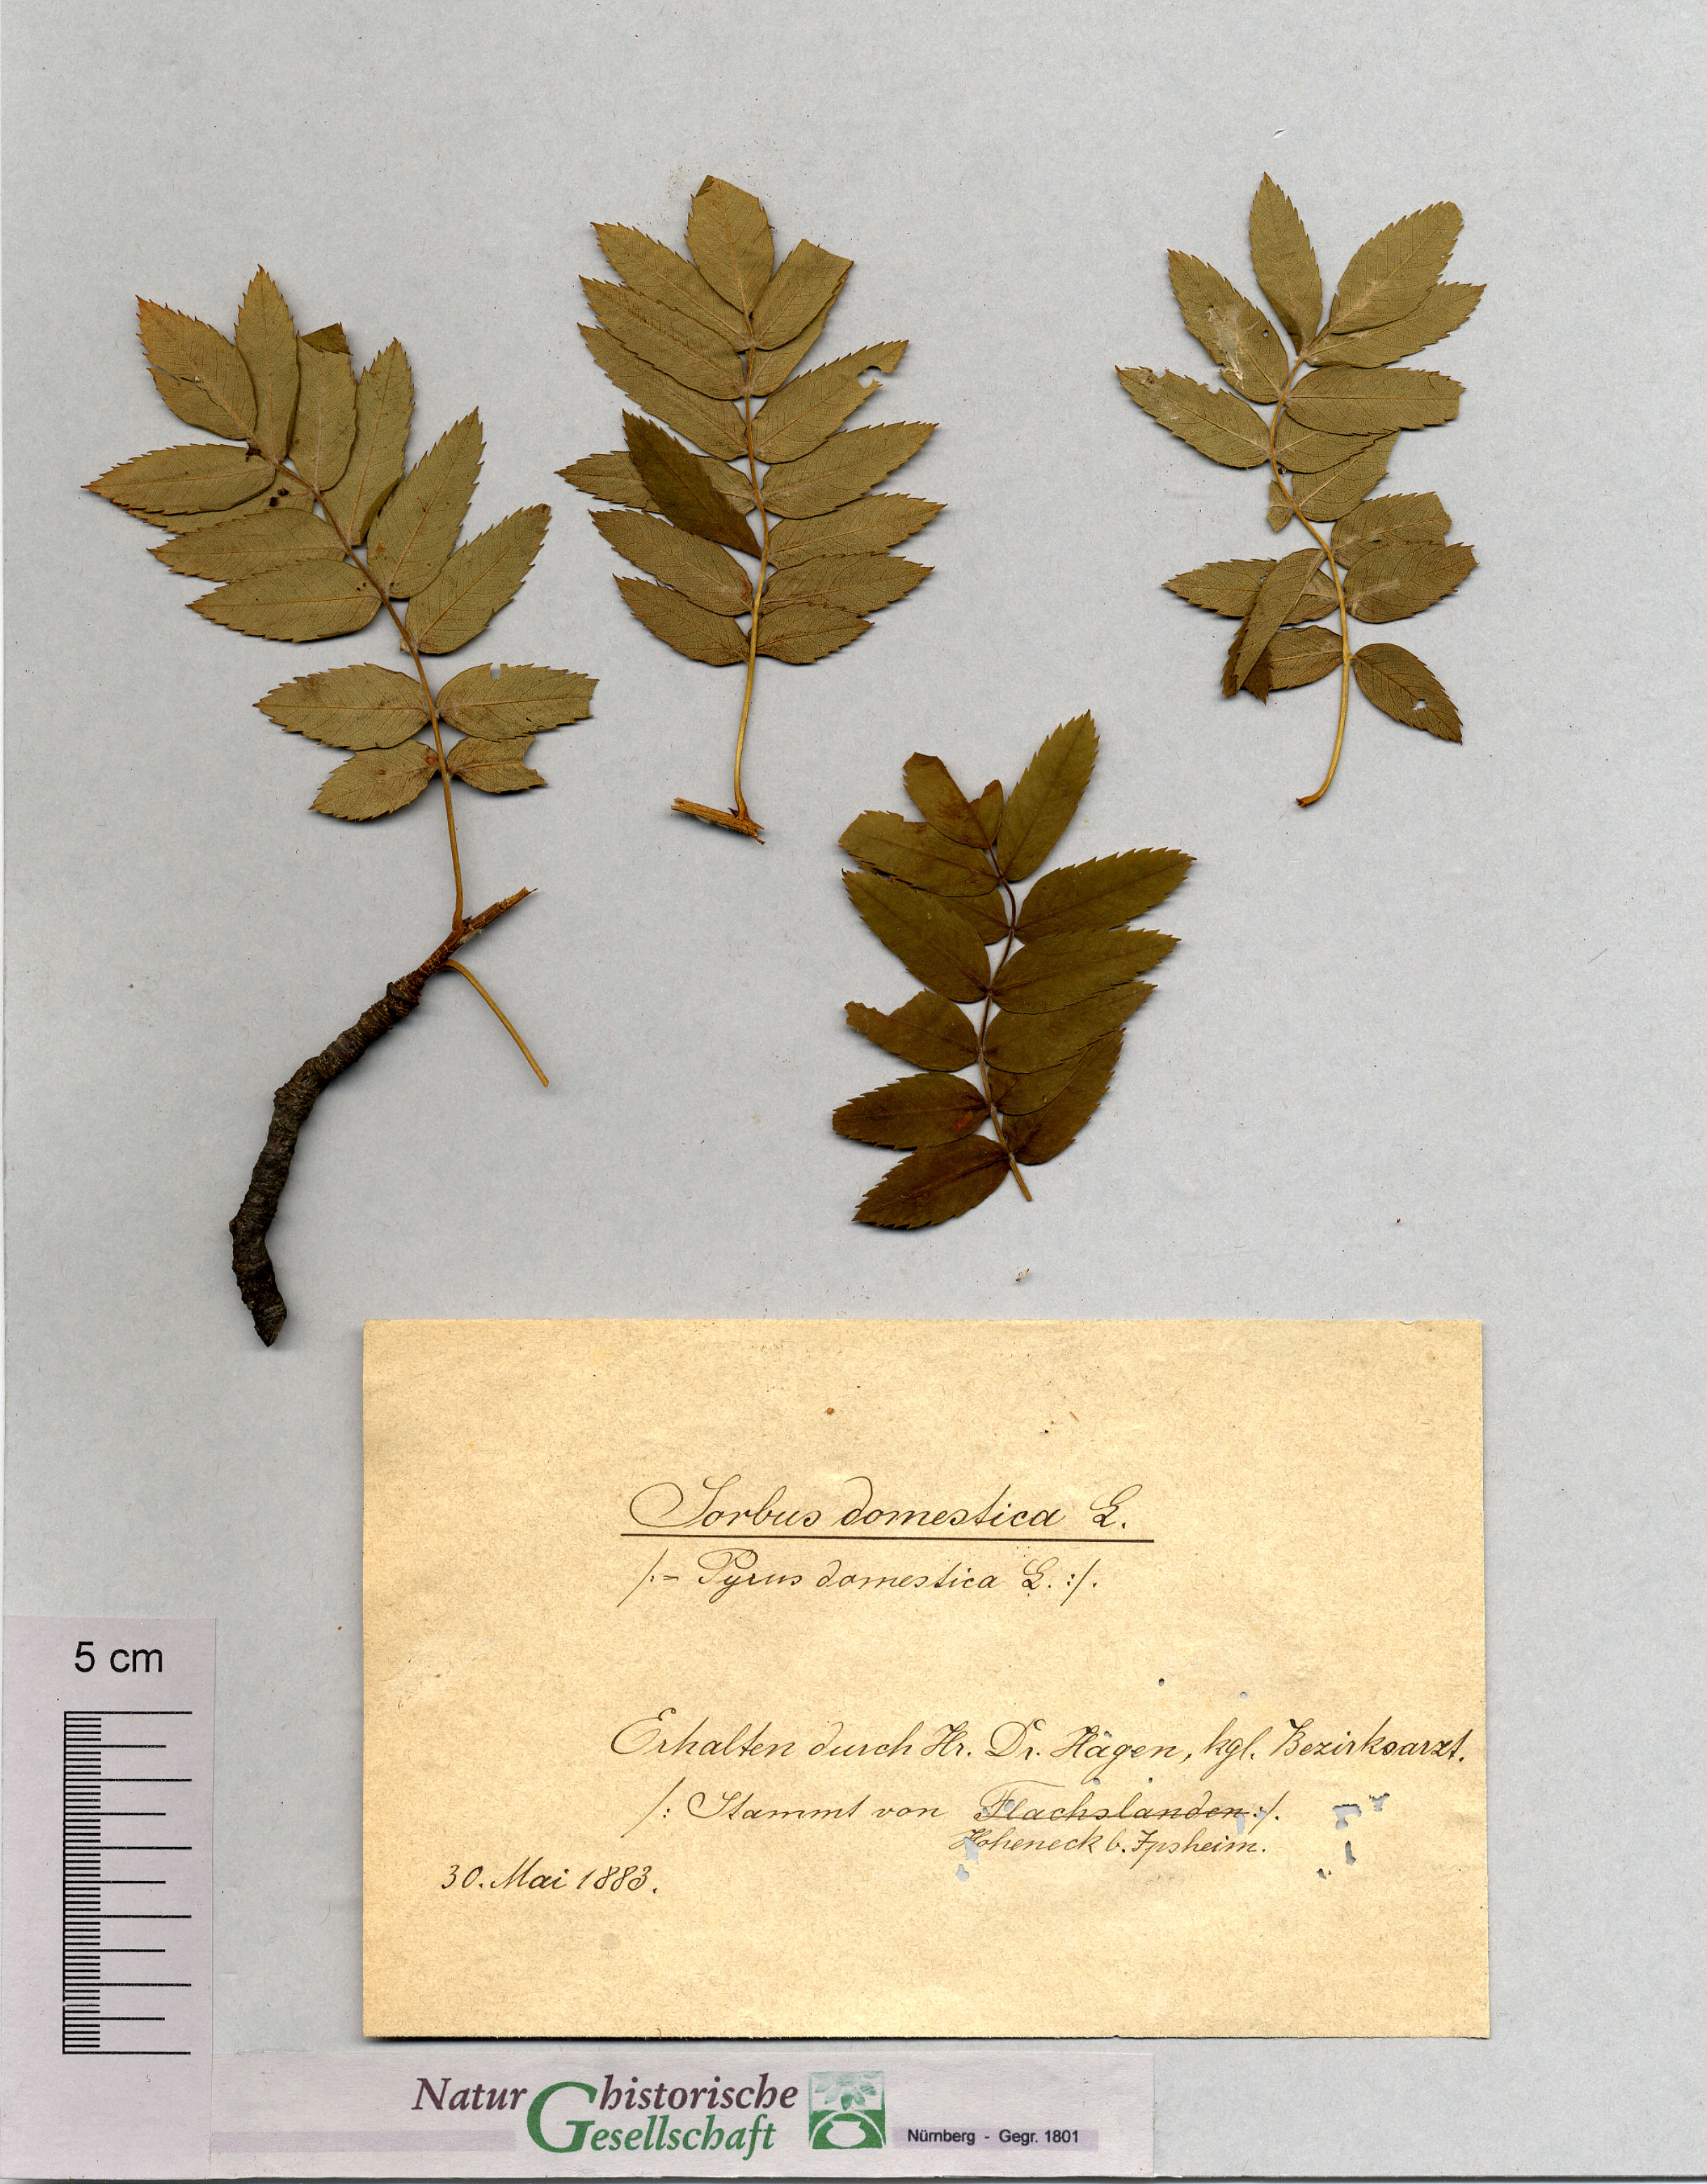 Sorbus domestica L.
/:= Pyrus domestica L. :/.
Erhalten durch Hr. Dr. Hagen, kgl. Bezirksarzt.
/: Stammt von Flachslanden :/.
Hoheneck b. Ipsheim.
30. Mai 1883.
5 cm
Naturhistorische
Gesellschaft
Nürnberg - Gegr. 1801